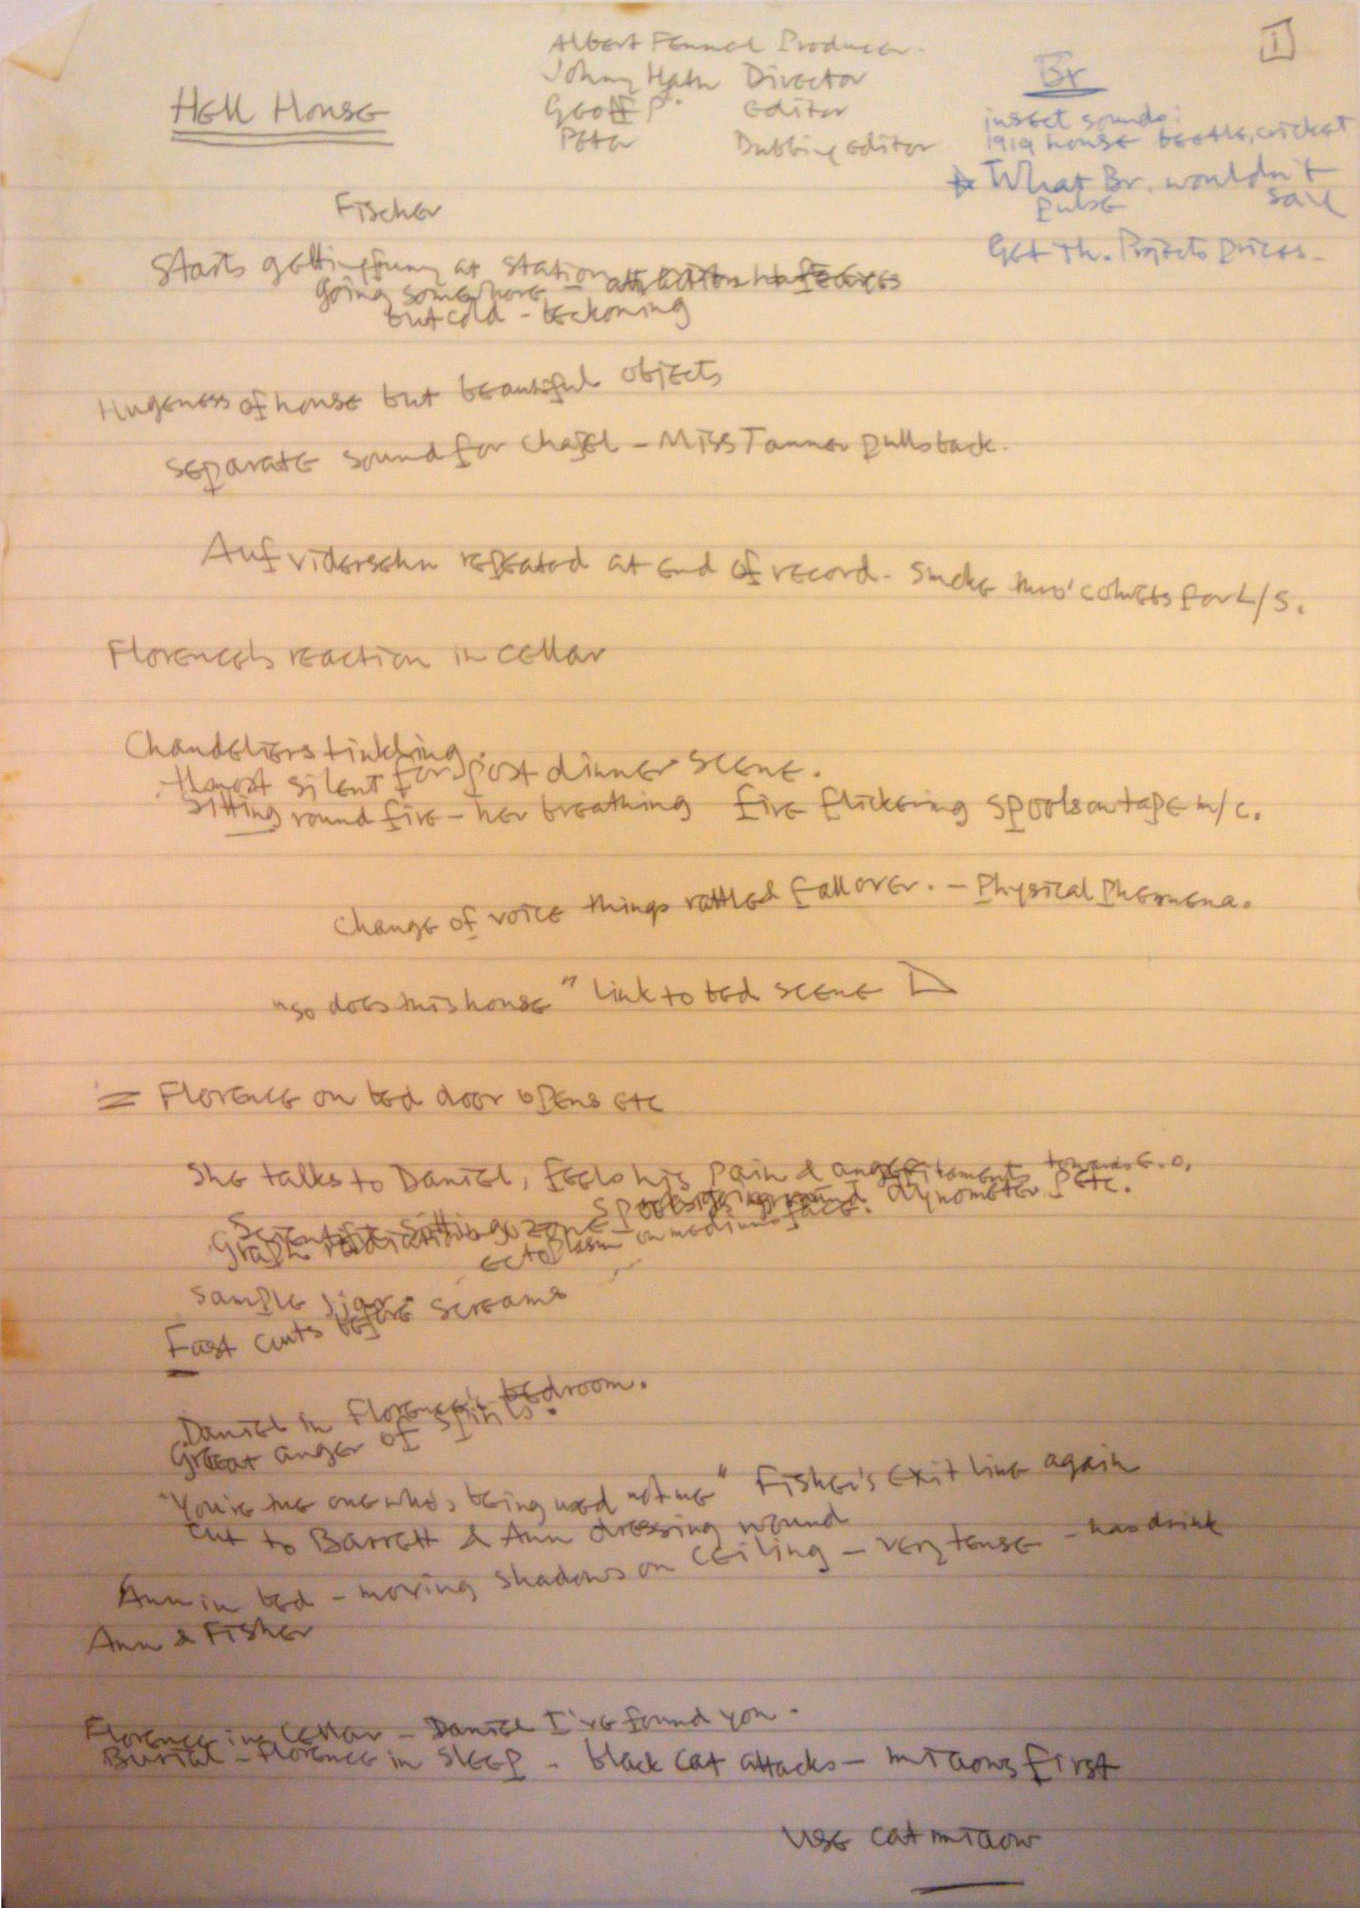 1
Hell House
Albert Fennel Producer.
Johnny Director
Geoff P. Editor
Peter Dubbing editor
Br
insect sounds:
1919 house beetle, cricket
What Br. wouldn't
pulse sail
Get Th. Projects prices.
Fischer
Starts getting funny at station
going somewhere
but cold - beckoning
Hugeness of house but beautiful objects
separate sound for chapel - Miss Tanner pulls back.
Auf vidersehn repeated at end of record - smoke thro' for L/S.
Florence's reaction in cellar
Chandeliers tinkling.
Almost silent for post dinner scene.
Sitting round fire - her breathing fire flickering spools on tape m/c.
Change of voice things rattle & fall over. - Physical Phenomena.
"so does this house" link to bed scene
= Florence on bed door opens etc
She talks to Daniel, feels his pain & anger towards E.O.
Scientific sitting spools going round dynometer etc.
Graph ectoplasm on medium's face.
Sample jar.
Fast cuts before screams
Daniel in Florence's bedroom.
Great anger of spirits.
"You're the one who's being used not me" Fisher's exit line again
cut to Barrett & Ann dressing wound
Ann in bed - moving shadows on ceiling - very tense - has drink
Ann & Fisher
Florence in cellar - Daniel I've found you.
Burial - Florence in sleep - black cat attacks - miaows first
use cat miaow